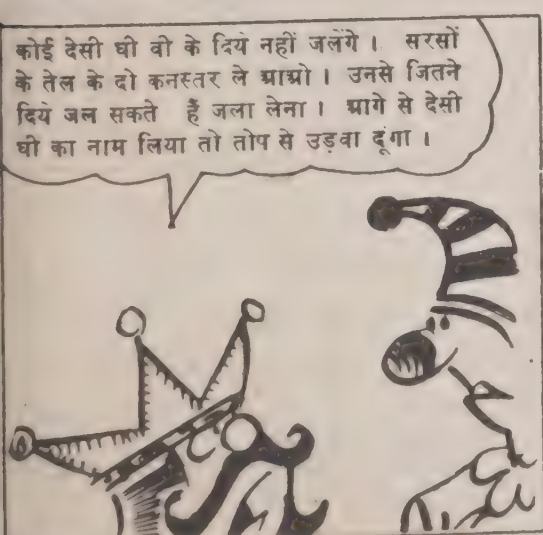 कोई देसी घी वी के दिये नहीं जलेंगे । सरसों
के तेल के दो कनस्तर ले आओ । उनसे जितने
दिये जल सकते हैं जला लेना । आगे से देसी
घी का नाम लिया तो तोप से उड़वा दूंगा ।